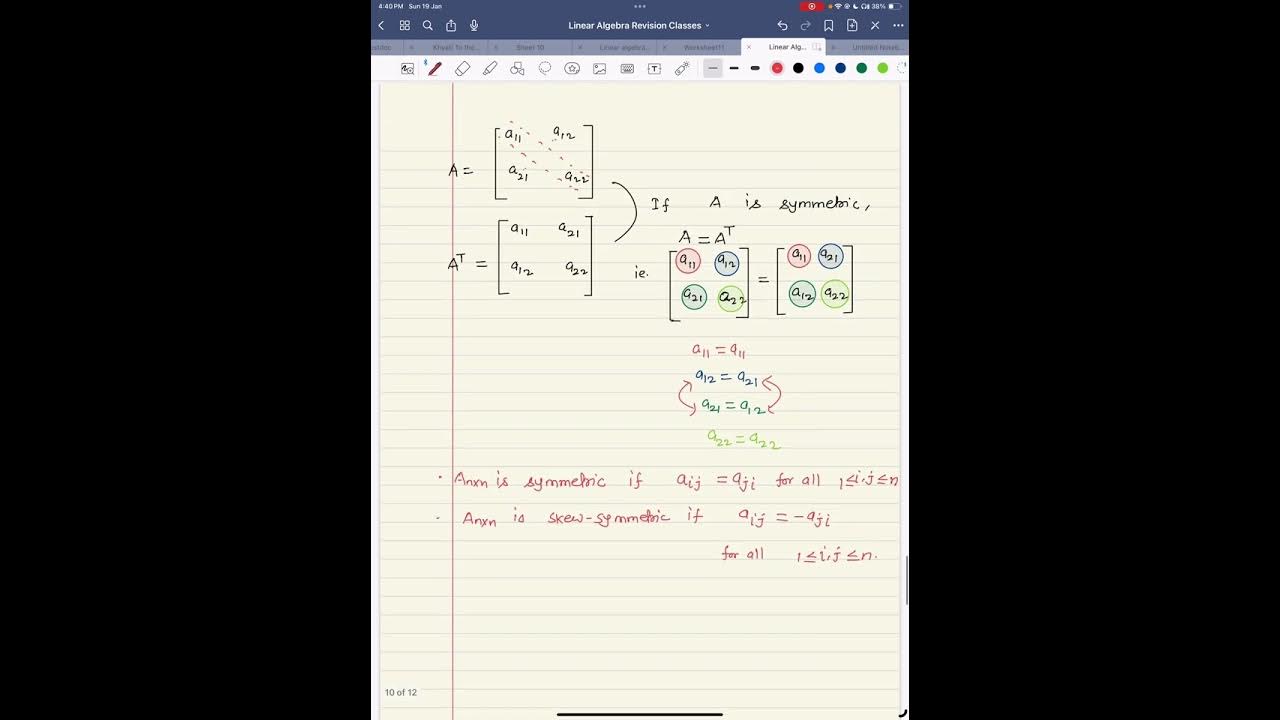 4:40 PM Sun 19 Jan
38%
Linear Algebra Revision Classes
ostdoc
Khyati To the...
Sheet 10
Linear algebra...
Worksheet11
Linear Alg...
Untitled Noteb...
A = [a11 a12
a21 a22]
A^T = [a11 a21
a12 a22]
If A is symmetric,
A = A^T
ie. [a11 a12 = [a11 a21
a21 a22] a12 a22]
a11 = a11
a12 = a21
a21 = a12
a22 = a22
· Anxn is symmetric if aij = aji for all 1≤i,j≤n
· Anxn is skew-symmetric if aij = -aji
for all 1≤i,j≤n.
10 of 12